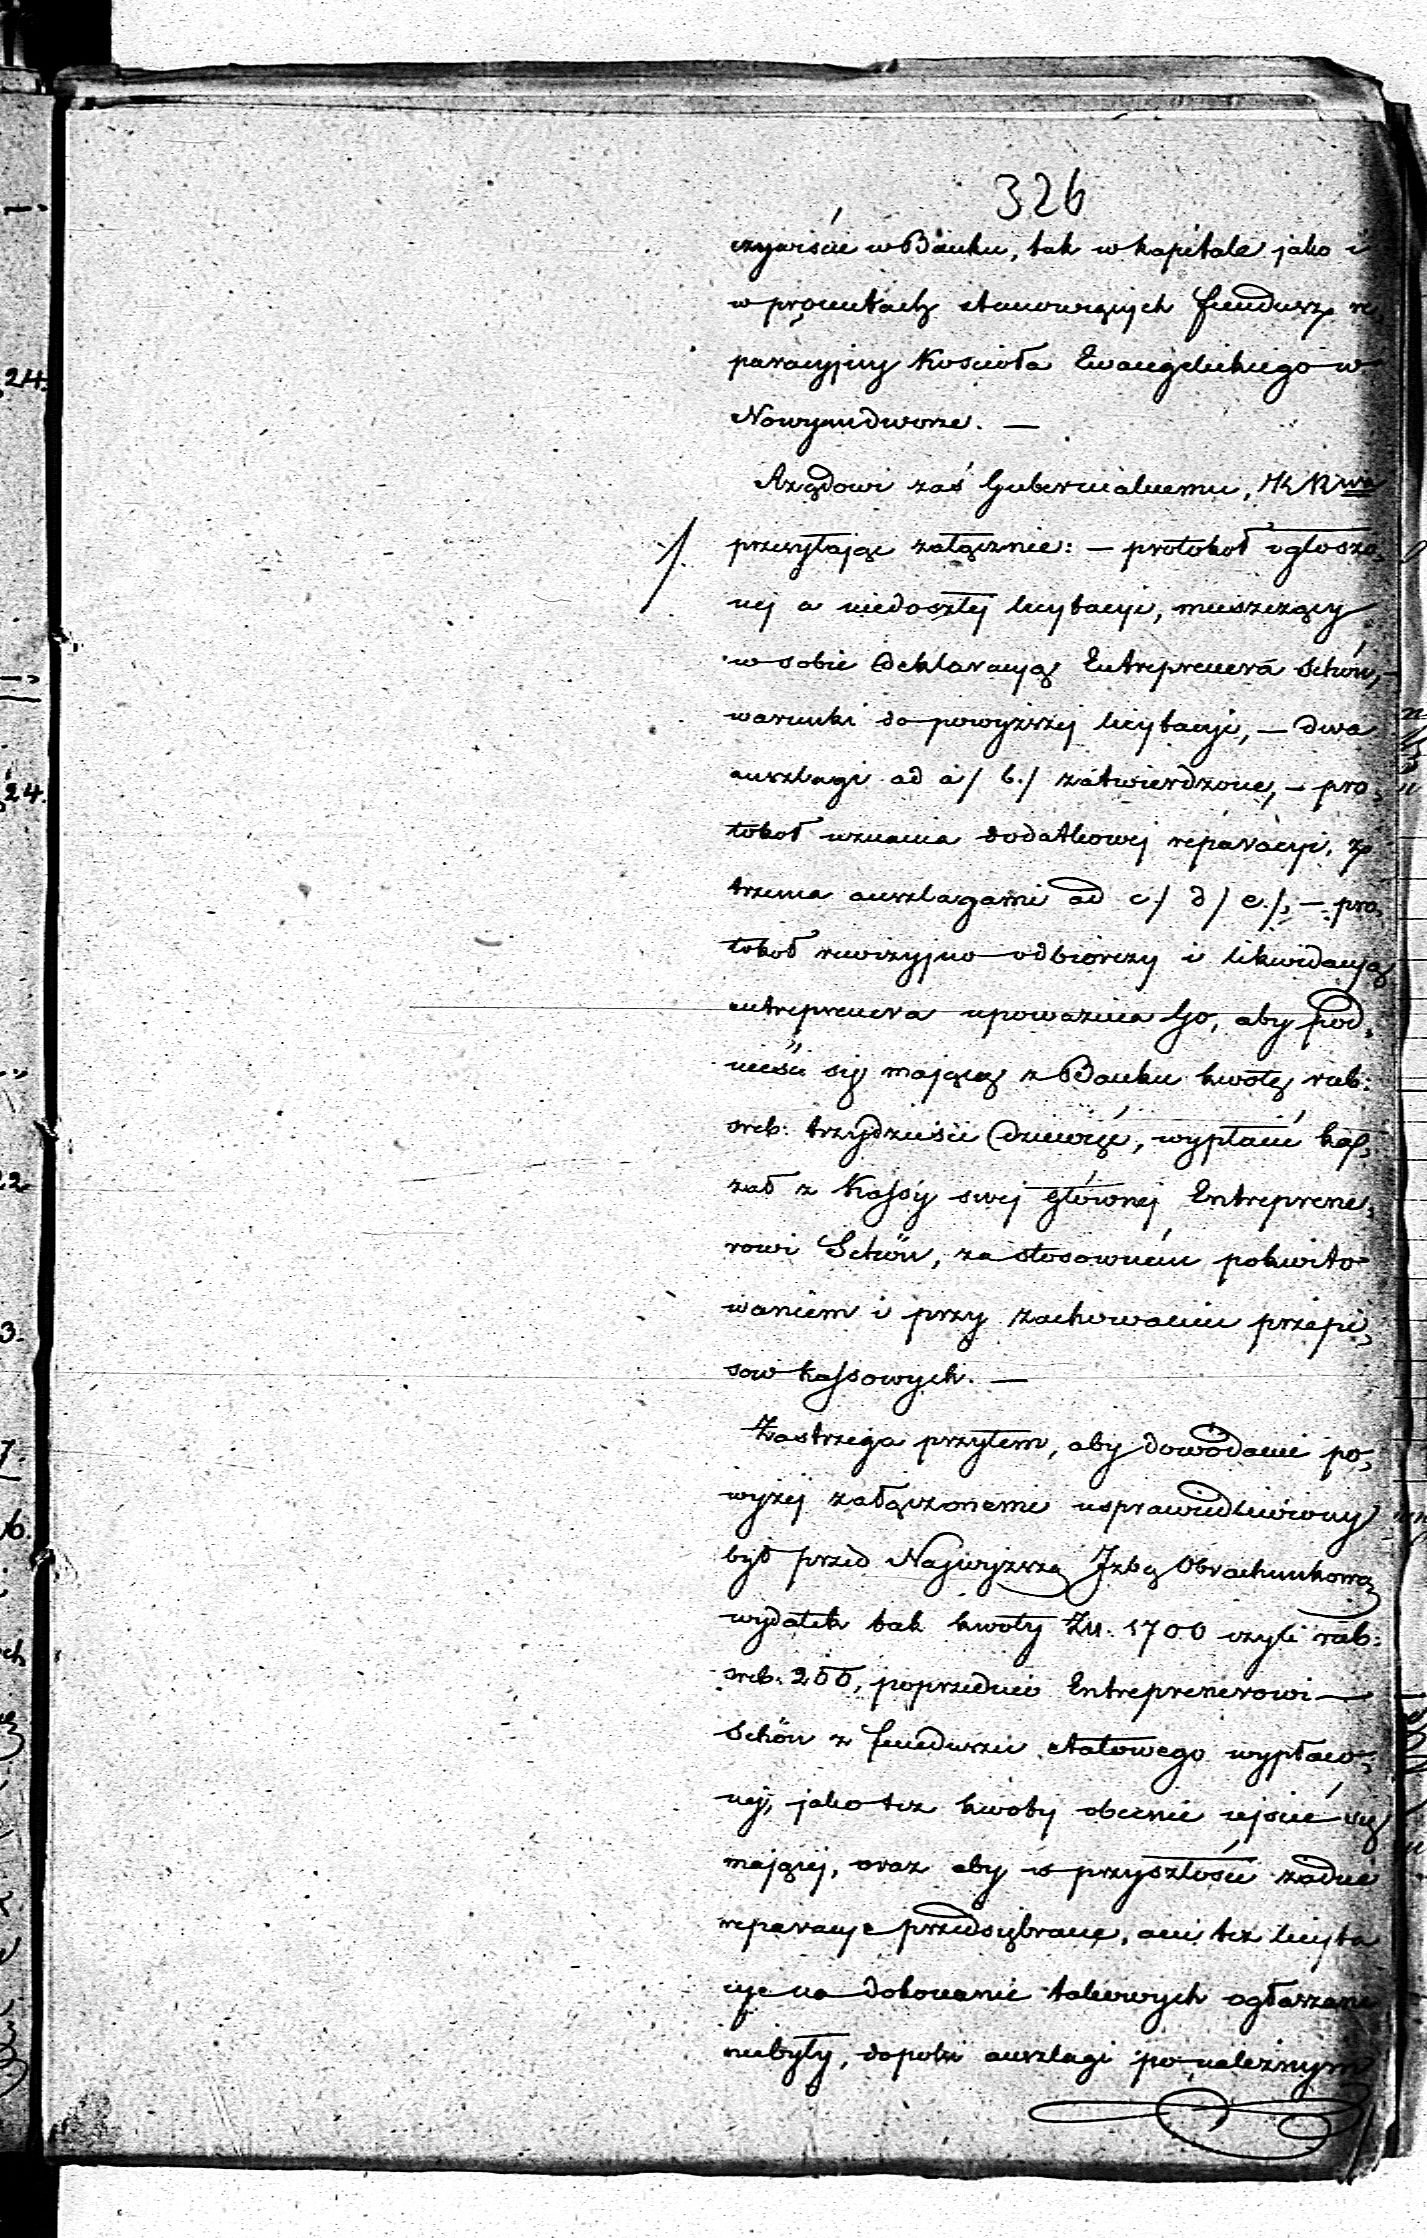 326
czywiście w Banku, tak w kapitale jako i
w procentach stanowiących fundusz re,
paracyjny Kościoła Ewangelickiego w
Nowymdworze. —
Rządowi zaś Gubernialnemu, KR
przesyłając załącznie: — protokoł ogłoszo,
nej a niedoszłej licytacyi, mieszczący
w sobie deklaracyą Entreprenera Schön, —
warunki do powyższej licytacyi, — dwa
anszlagi ad a/ b./ zatwierdzone, — pro,
tokoł uznania dodatkowej reparacyi, z
trzema anszlagami ad c/ d/ e/, — pro,
tokoł rewizyjno odbiorczy i likwidacyą
entreprenera upoważnia Go, aby pod,
nieść się mającą z Banku kwotę rub:
sreb: trzydzieści dziewięć, wypłacić ka,
zał z Kassy swej głównej Entreprene,
rowi Schön, za stosowném pokwito-
waniem i przy zachowaniu przepi,
sow kassowych. —
Zastrzega przytem, aby dowodami po,
wyżej załączonemi usprawiedliwiony
był przed Najwyższą Jzbą Obrachunkową
wydatek tak kwoty Zł. 1700 czyli rub:
sreb. 255, poprzednio Entreprenerowi —
Schön z funduszu etatowego wypłaco,
nej, jako też kwoty obecnie ujścić się
mającej, oraz aby w przyszłości żadne
reparacye przedsiębrane, ani też licyta
cye na dokonanie takowych ogłaszane
niebyły, dopoki anszlagi po należnym
1/.